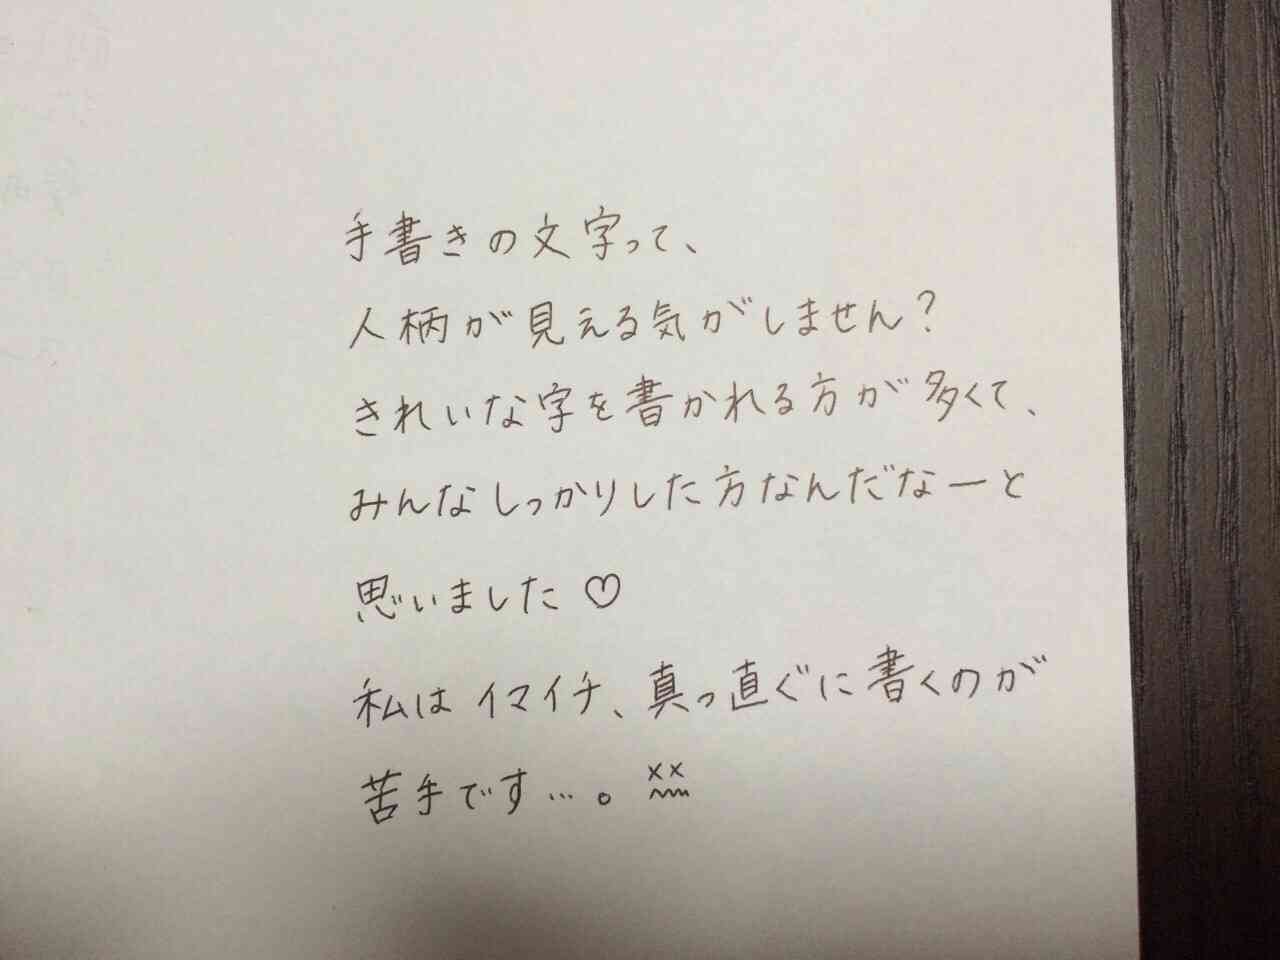 手書きの文字って、
人柄が見える気がしません?
きれいな字を書かれる方が多くて、
みんなしっかりした方なんだなーと
思いました♡
私はイマイチ、真っ直ぐに書くのが
苦手です…。